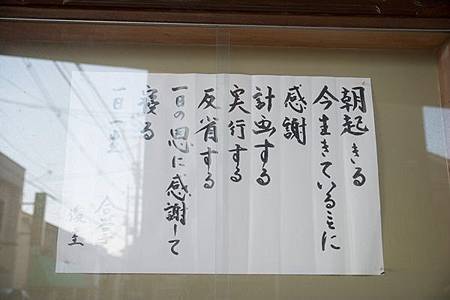 朝起きる
今生きていることに
感謝
計画する
実行する
反省する
一日の恩に感謝して
寝る